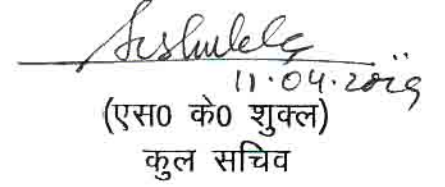 11.04.2019
(एस0 के0 शुक्ल)
कुल सचिव